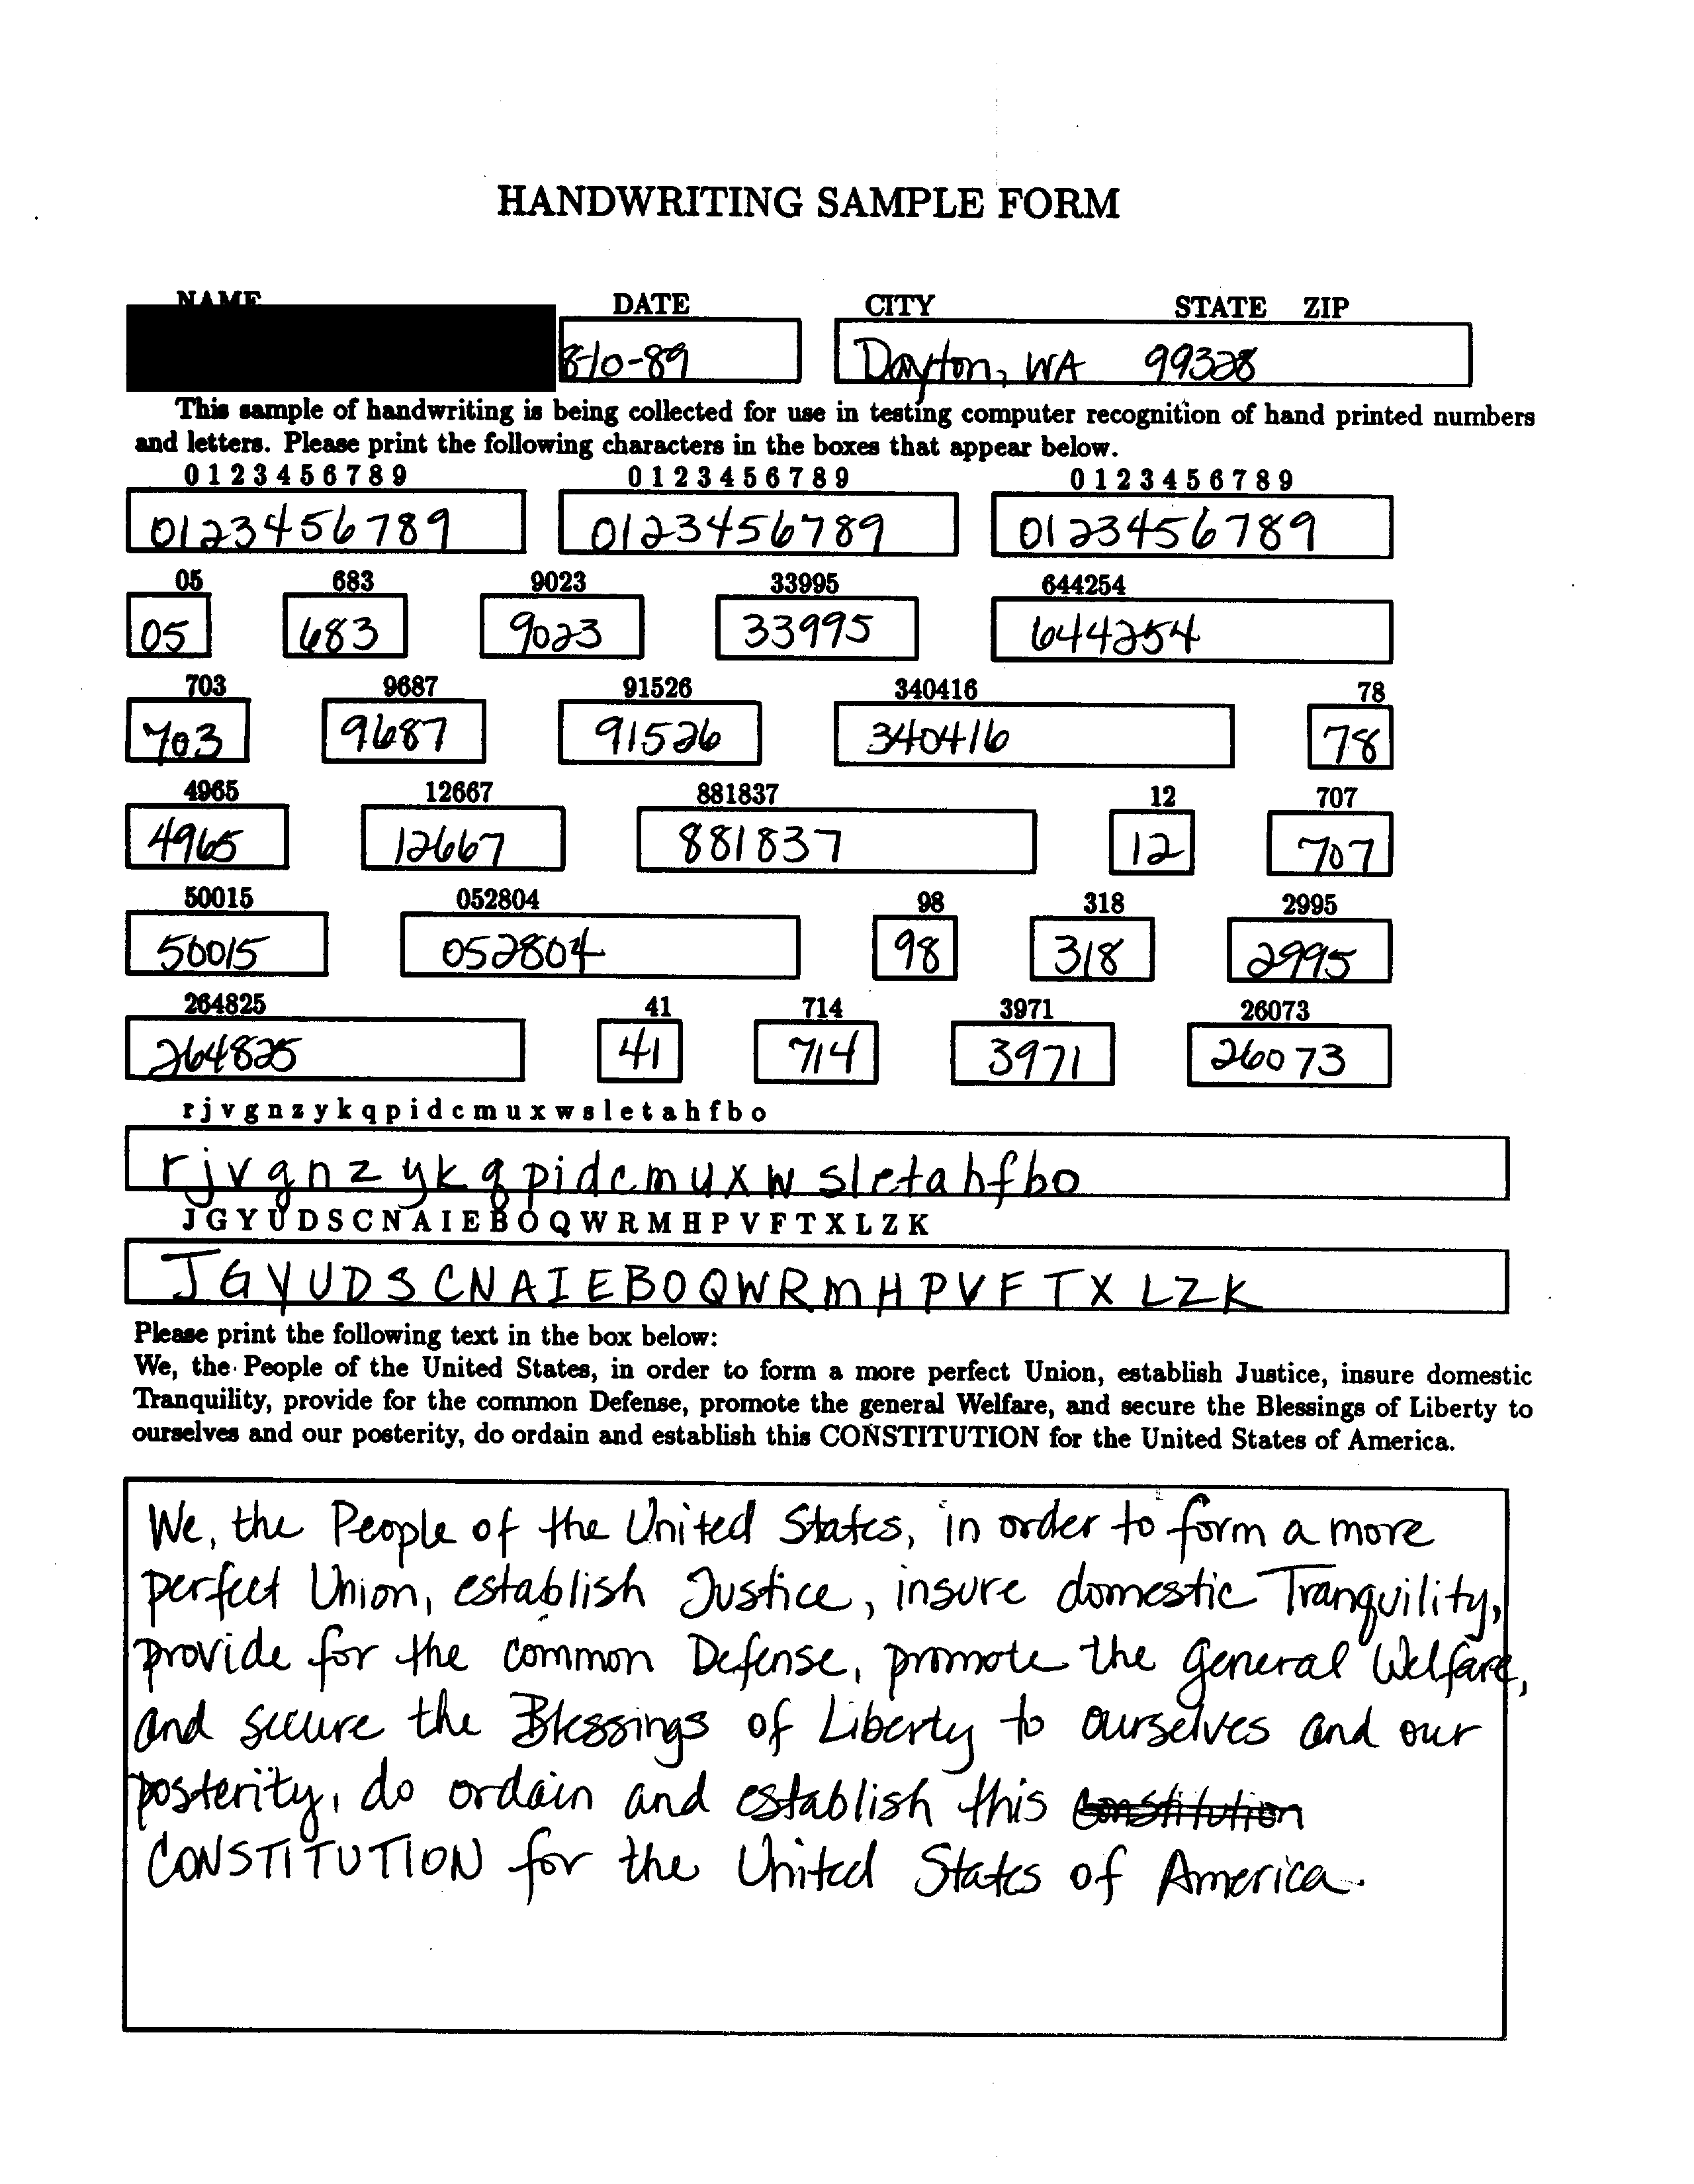 HANDWRITING SAMPLE FORM
NAME DATE CITY STATE ZIP
8-10-89 Dayton, WA 99328
This sample of handwriting is being collected for use in testing computer recognition of hand printed numbers
and letters. Please print the following characters in the boxes that appear below.
0 1 2 3 4 5 6 7 8 9 0 1 2 3 4 5 6 7 8 9 0 1 2 3 4 5 6 7 8 9
0123456789 0123456789 0123456789
05 683 9023 33995 644254
05 683 9023 33995 644254
703 9687 91526 340416 78
703 9687 91526 340416 78
4965 12667 881837 12 707
4965 12667 881837 12 707
50015 052804 98 318 2995
50015 052804 98 318 2995
264825 41 714 3971 26073
264825 41 714 3971 26073
r j v g n z y k q p i d c m u x w s l e t a h f b o
r j v g n z y k q p i d c m u x w s l e t a h f b o
J G Y U D S C N A I E B O Q W R M H P V F T X L Z K
J G Y U D S C N A I E B O Q W R M H P V F T X L Z K
Please print the following text in the box below:
We, the People of the United States, in order to form a more perfect Union, establish Justice, insure domestic
Tranquility, provide for the common Defense, promote the general Welfare, and secure the Blessings of Liberty to
ourselves and our posterity, do ordain and establish this CONSTITUTION for the United States of America.
We, the People of the United States, in order to form a more
perfect Union, establish Justice, insure domestic Tranquility,
provide for the common Defense, promote the general Welfare,
and secure the Blessings of Liberty to ourselves and our
posterity, do ordain and establish this Constitution
CONSTITUTION for the United States of America.